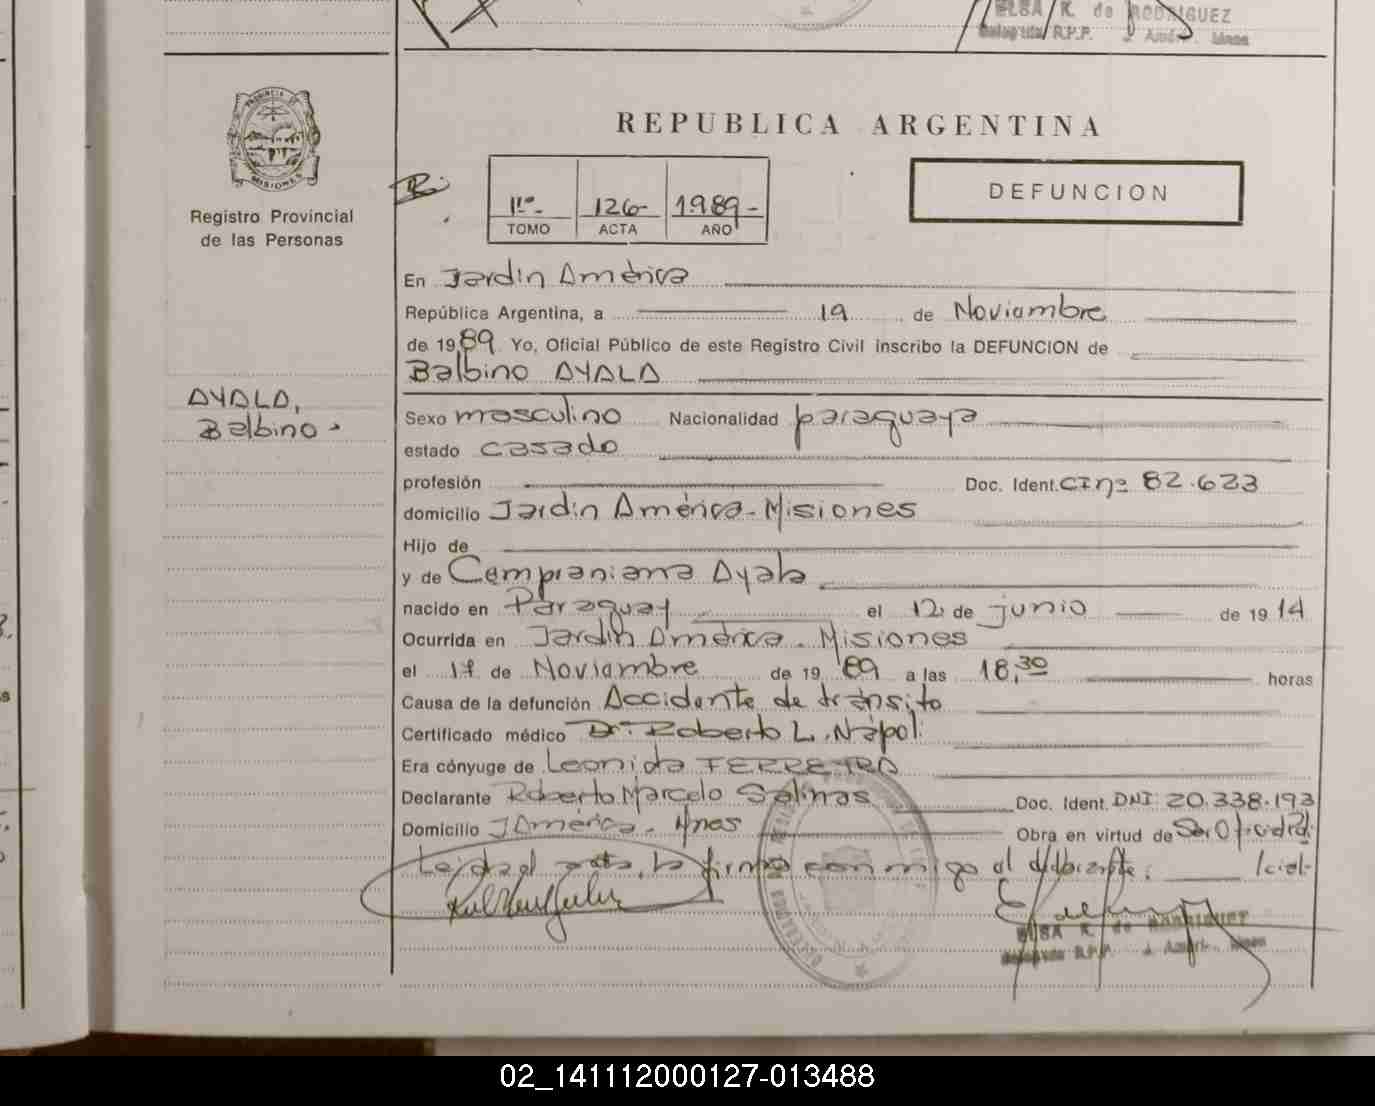 ELSA R. de RODRIGUEZ
Delegada R.P.P. J. Amér. Mnes
PROVINCIA DE
MISIONES
Registro Provincial
de las Personas
REPUBLICA ARGENTINA
DEFUNCION
1º- 126- 1989-
TOMO ACTA AÑO
En Jardín América
República Argentina, a 19 de Noviembre
de 1989 Yo, Oficial Público de este Registro Civil inscribo la DEFUNCION de
Balbino AYALA
AYALA,
Balbino.
Sexo masculino Nacionalidad paraguaya
estado casado
profesión Doc. Ident. CI nº 82.623
domicilio Jardín América-Misiones
Hijo de
y de Ayala
nacido en Paraguay el 12 de junio de 1914
Ocurrida en Jardín América. Misiones
el 17 de Noviembre de 1989 a las 18,30 horas
Causa de la defunción Accidente de tránsito
Certificado médico Dr. Roberto L. Nápoli
Era cónyuge de Leonida FERREIRA
Declarante Roberto Marcelo Salinas Doc. Ident. DNI 20.338.193
Domicilio J América. Mnes Obra en virtud de Ser Oficial d Pol
Leída el acta, la firma conmigo el
ELSA R. de RODRIGUEZ
Delegada R.P.P. J. Améri. Mnes
02_141112000127-013488